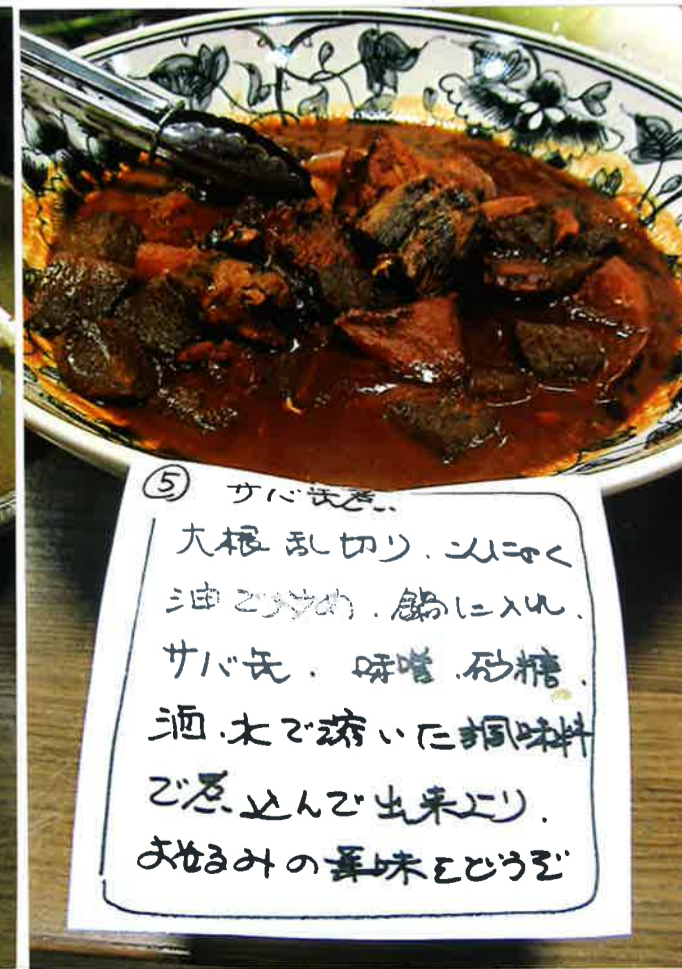 ⑤ サバ缶煮
大根乱切り、こんにゃく
油で炒め、鍋に入れ、
サバ缶、味噌、砂糖、
酒、水で溶いた調味料
で煮込んで出来上り、
の味をどうぞ